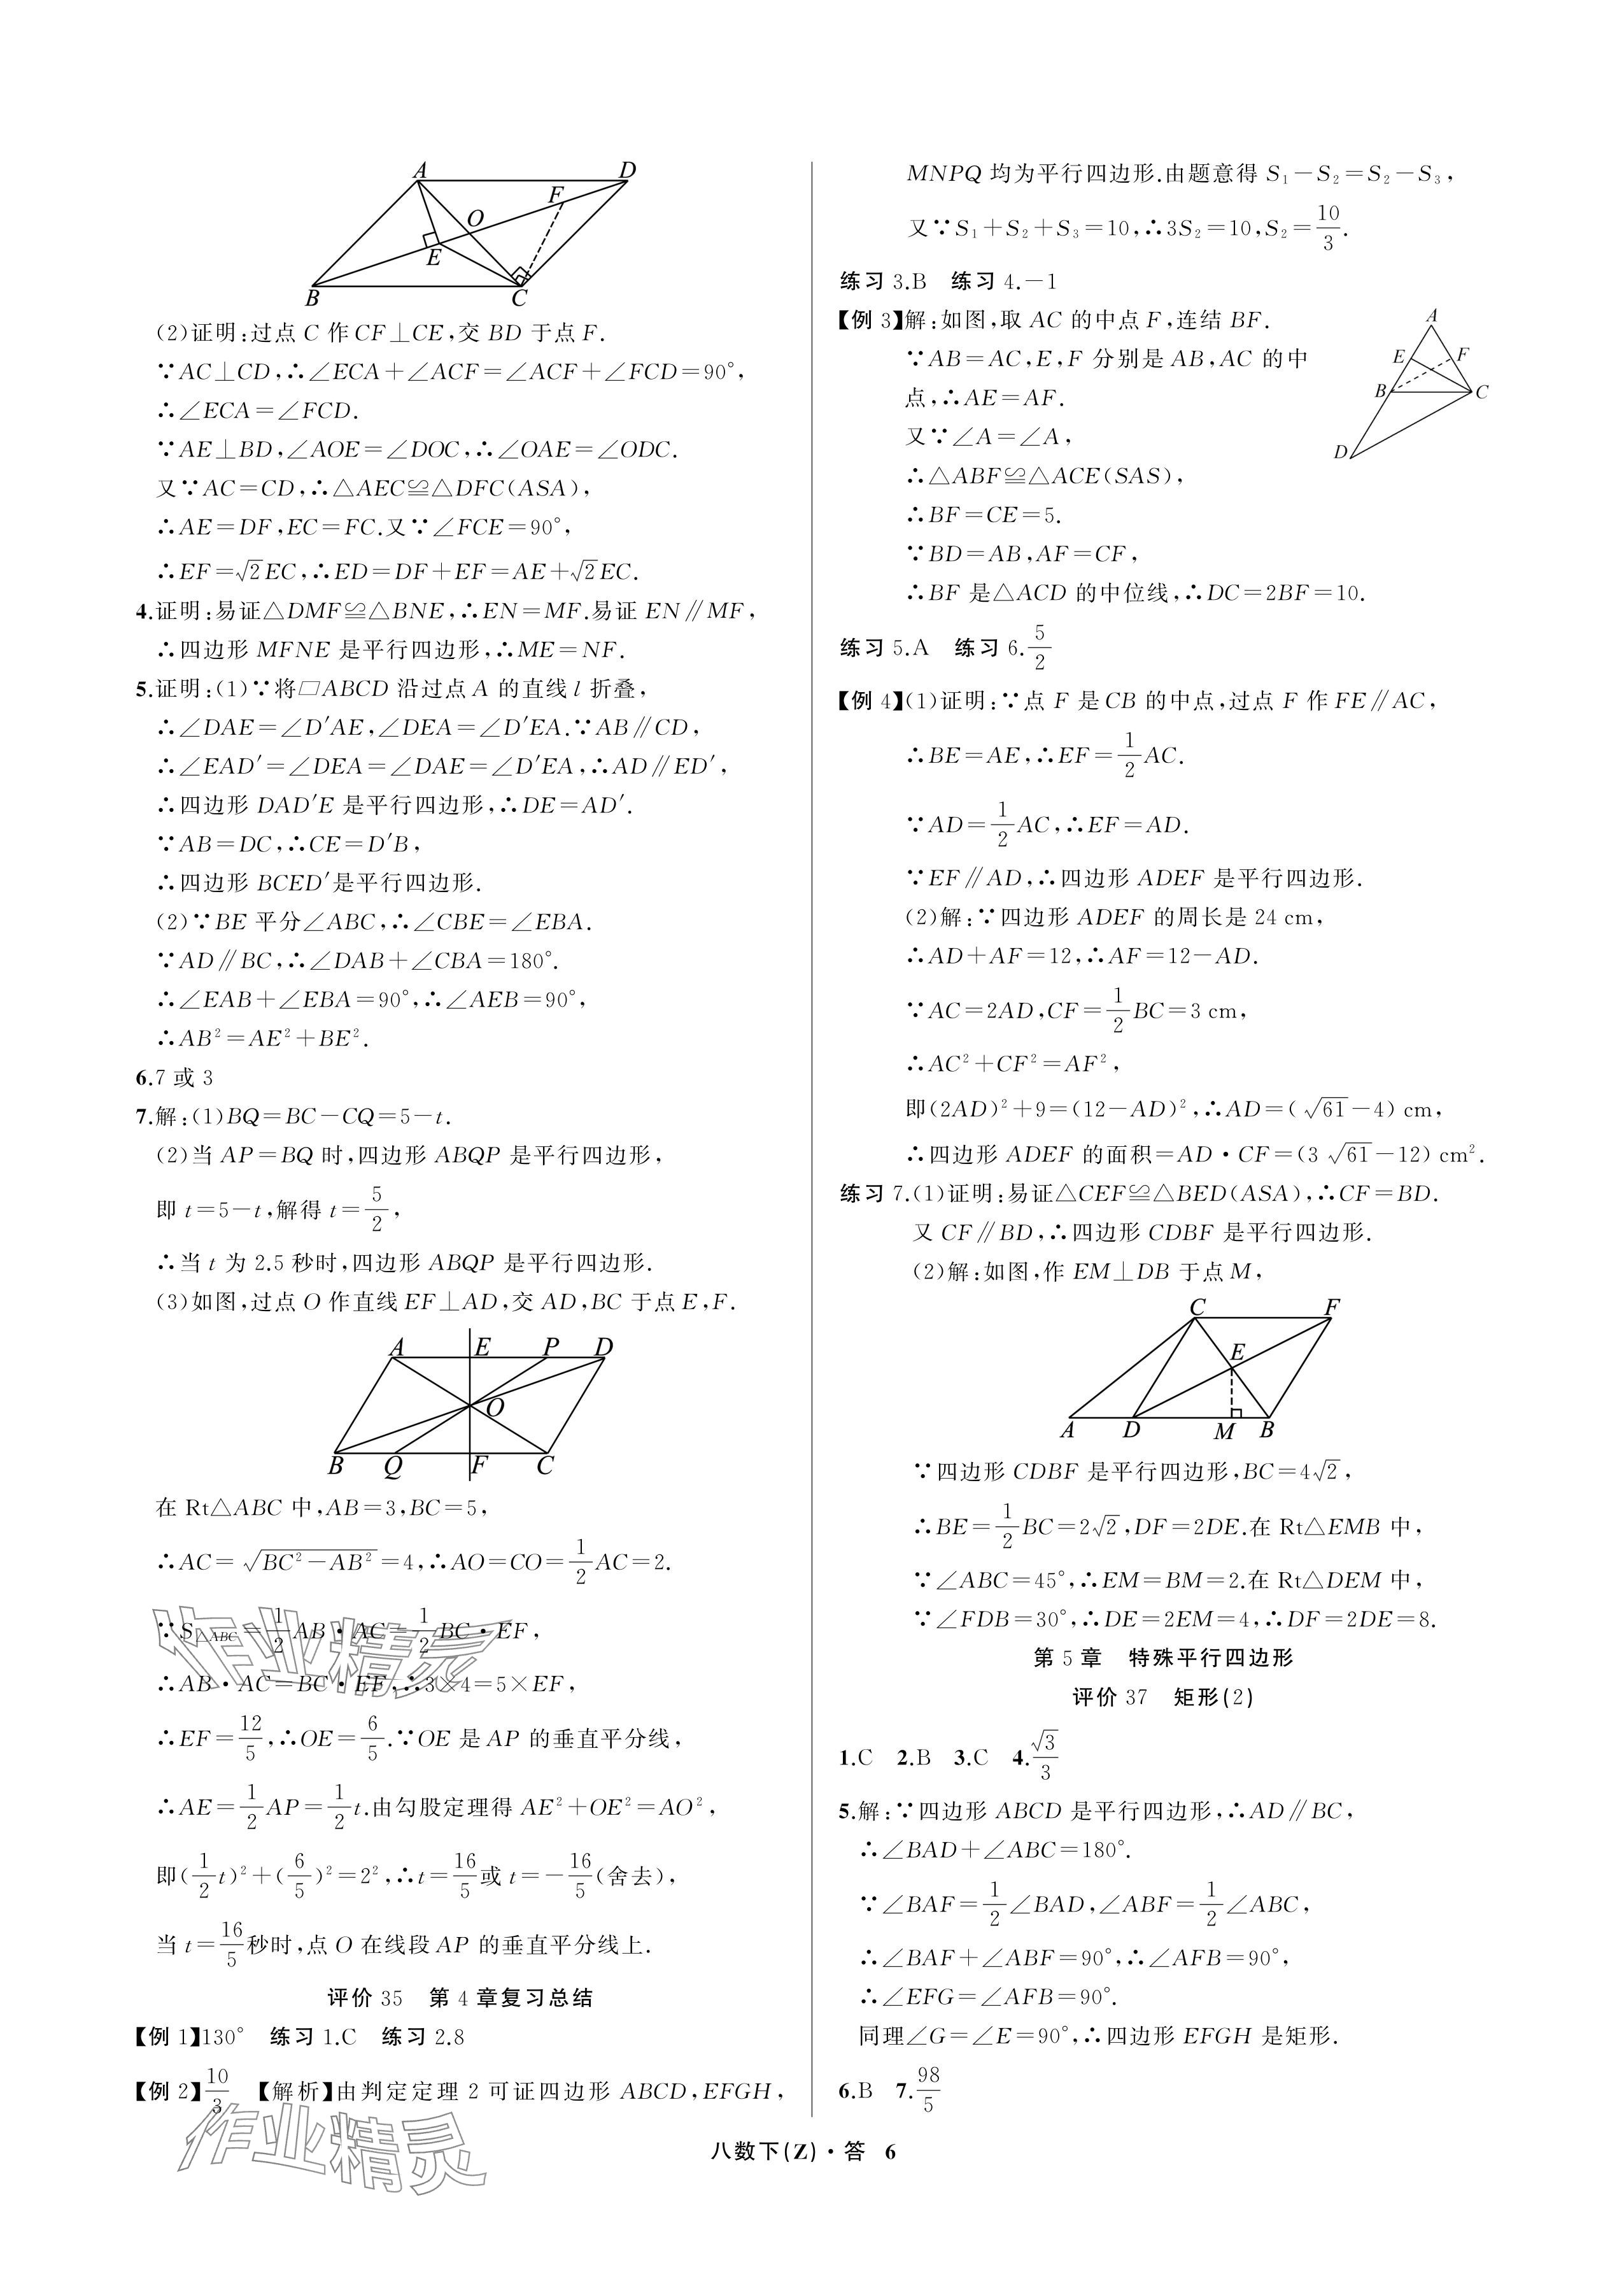 A D F O E B C
(2)证明:过点 C 作 CF⊥CE,交 BD 于点 F.
∵AC⊥CD,∴∠ECA+∠ACF=∠ACF+∠FCD=90°,
∴∠ECA=∠FCD.
∵AE⊥BD,∠AOE=∠DOC,∴∠OAE=∠ODC.
又∵AC=CD,∴△AEC≌△DFC(ASA),
∴AE=DF,EC=FC.又∵∠FCE=90°,
∴EF=√2EC,∴ED=DF+EF=AE+√2EC.
4.证明:易证△DMF≌△BNE,∴EN=MF.易证 EN∥MF,
∴四边形 MFNE 是平行四边形,∴ME=NF.
5.证明:(1)∵将▱ABCD 沿过点 A 的直线 l 折叠,
∴∠DAE=∠D′AE,∠DEA=∠D′EA.∵AB∥CD,
∴∠EAD′=∠DEA=∠DAE=∠D′EA,∴AD∥ED′,
∴四边形 DAD′E 是平行四边形,∴DE=AD′.
∵AB=DC,∴CE=D′B,
∴四边形 BCED′是平行四边形.
(2)∵BE 平分∠ABC,∴∠CBE=∠EBA.
∵AD∥BC,∴∠DAB+∠CBA=180°.
∴∠EAB+∠EBA=90°,∴∠AEB=90°,
∴AB²=AE²+BE².
6.7 或 3
7.解:(1)BQ=BC−CQ=5−t.
(2)当 AP=BQ 时,四边形 ABQP 是平行四边形,
即 t=5−t,解得 t=5/2,
∴当 t 为 2.5 秒时,四边形 ABQP 是平行四边形.
(3)如图,过点 O 作直线 EF⊥AD,交 AD,BC 于点 E,F.
A E P D O B Q F C
在 Rt△ABC 中,AB=3,BC=5,
∴AC=√(BC²−AB²)=4,∴AO=CO=1/2AC=2.
∵S△ABC=1/2AB·AC=1/2BC·EF,
∴AB·AC=BC·EF,∴3×4=5×EF,
∴EF=12/5,∴OE=6/5.∵OE 是 AP 的垂直平分线,
∴AE=1/2AP=1/2t.由勾股定理得 AE²+OE²=AO²,
即(1/2t)²+(6/5)²=2²,∴t=16/5或 t=−16/5(舍去),
当 t=16/5秒时,点 O 在线段 AP 的垂直平分线上.
评价 35 第 4 章复习总结
【例 1】130° 练习 1.C 练习 2.8
【例 2】10/3 【解析】由判定定理 2 可证四边形 ABCD,EFGH,
MNPQ 均为平行四边形.由题意得 S₁−S₂=S₂−S₃,
又∵S₁+S₂+S₃=10,∴3S₂=10,S₂=10/3.
练习 3.B 练习 4.−1
【例 3】解:如图,取 AC 的中点 F,连结 BF.
∵AB=AC,E,F 分别是 AB,AC 的中
点,∴AE=AF.
又∵∠A=∠A,
∴△ABF≌△ACE(SAS),
∴BF=CE=5.
∵BD=AB,AF=CF,
∴BF 是△ACD 的中位线,∴DC=2BF=10.
A E F B C D
练习 5.A 练习 6.5/2
【例 4】(1)证明:∵点 F 是 CB 的中点,过点 F 作 FE∥AC,
∴BE=AE,∴EF=1/2AC.
∵AD=1/2AC,∴EF=AD.
∵EF∥AD,∴四边形 ADEF 是平行四边形.
(2)解:∵四边形 ADEF 的周长是 24 cm,
∴AD+AF=12,∴AF=12−AD.
∵AC=2AD,CF=1/2BC=3 cm,
∴AC²+CF²=AF²,
即(2AD)²+9=(12−AD)²,∴AD=(√61−4) cm,
∴四边形 ADEF 的面积=AD·CF=(3√61−12) cm².
练习 7.(1)证明:易证△CEF≌△BED(ASA),∴CF=BD.
又 CF∥BD,∴四边形 CDBF 是平行四边形.
(2)解:如图,作 EM⊥DB 于点 M,
C F E A D M B
∵四边形 CDBF 是平行四边形,BC=4√2,
∴BE=1/2BC=2√2,DF=2DE.在 Rt△EMB 中,
∵∠ABC=45°,∴EM=BM=2.在 Rt△DEM 中,
∵∠FDB=30°,∴DE=2EM=4,∴DF=2DE=8.
第 5 章 特殊平行四边形
评价 37 矩形(2)
1.C 2.B 3.C 4.√3/3
5.解:∵四边形 ABCD 是平行四边形,∴AD∥BC,
∴∠BAD+∠ABC=180°.
∵∠BAF=1/2∠BAD,∠ABF=1/2∠ABC,
∴∠BAF+∠ABF=90°,∴∠AFB=90°,
∴∠EFG=∠AFB=90°.
同理∠G=∠E=90°,∴四边形 EFGH 是矩形.
6.B 7.98/5
作业精灵
作业精灵
八数下(Z)·答 6